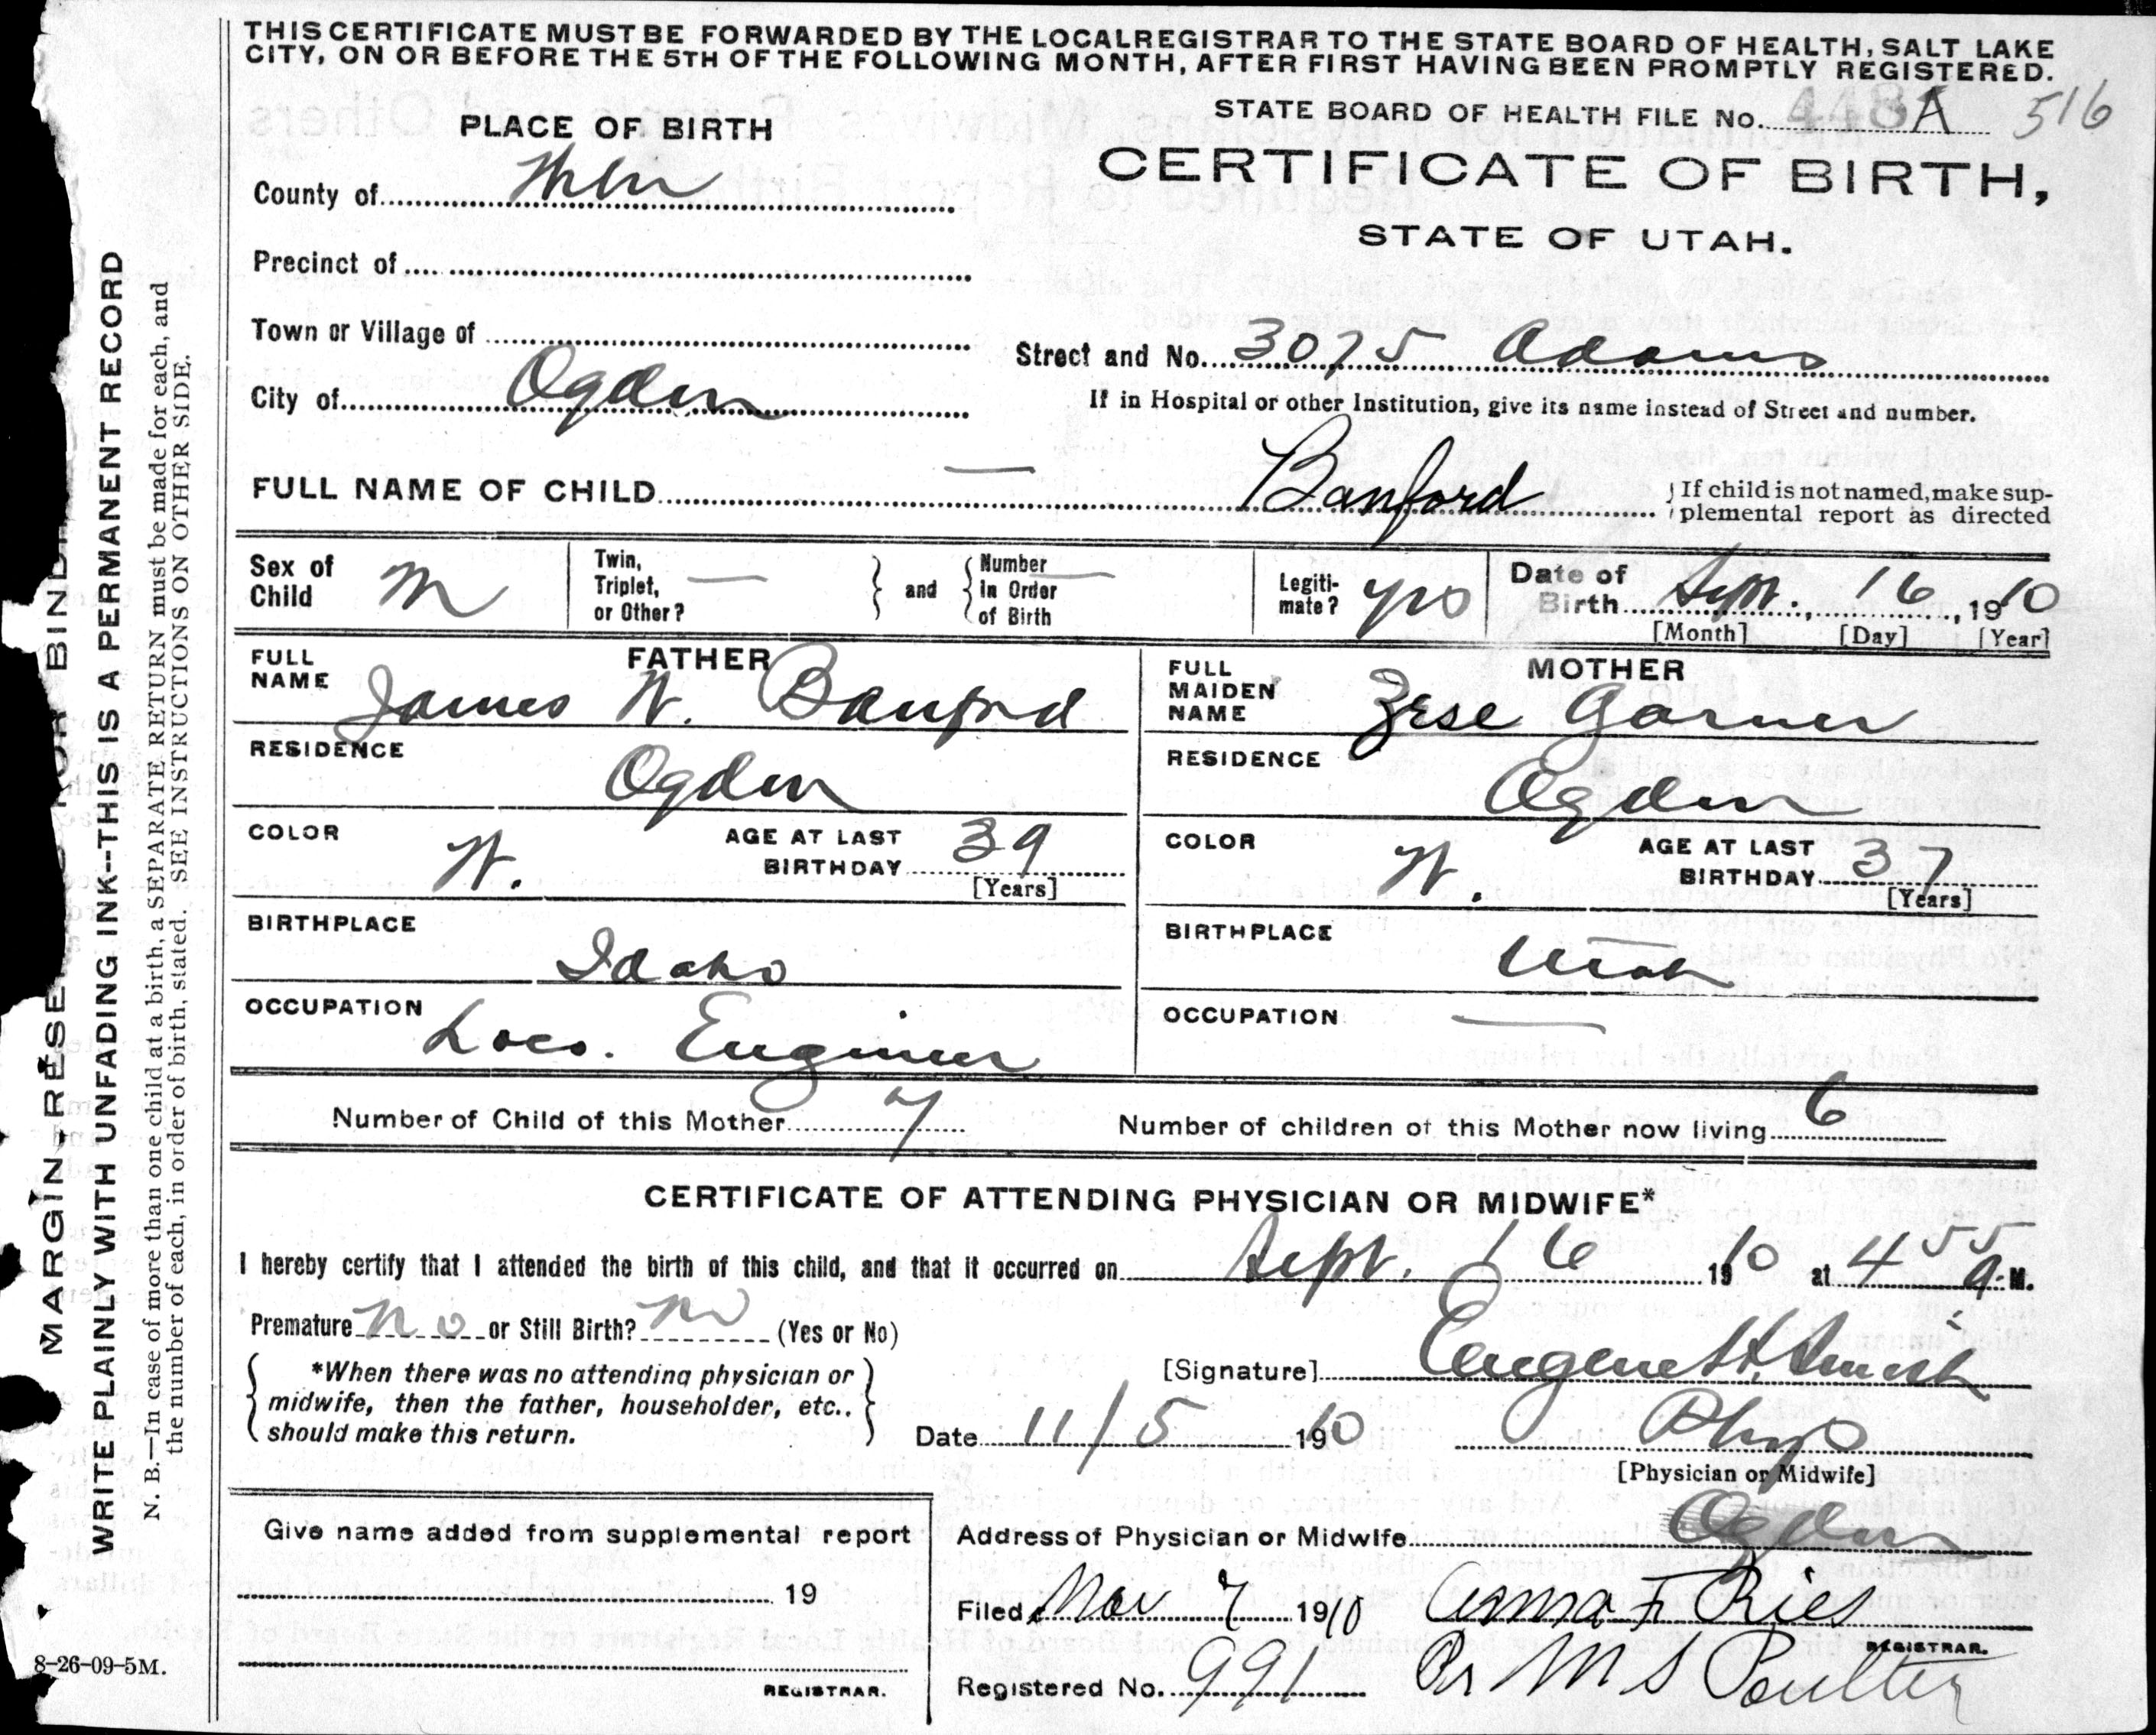 THIS CERTIFICATE MUST BE FORWARDED BY THE LOCAL REGISTRAR TO THE STATE BOARD OF HEALTH, SALT LAKE
CITY, ON OR BEFORE THE 5TH OF THE FOLLOWING MONTH, AFTER FIRST HAVING BEEN PROMPTLY REGISTERED.
STATE BOARD OF HEALTH FILE No. 448A 516
PLACE OF BIRTH
CERTIFICATE OF BIRTH,
STATE OF UTAH.
County of Weber
Precinct of
Town or Village of
Street and No. 3075 Adams
City of Ogden
If in Hospital or other Institution, give its name instead of Street and number.
FULL NAME OF CHILD — Banford
If child is not named, make sup-
plemental report as directed
Sex of Child M
Twin, Triplet, or Other? —
and
Number in Order of Birth —
Legiti-mate? yes
Date of Birth Sept. 16, 1910
[Month] [Day] [Year]
FATHER
FULL NAME James W. Banford
RESIDENCE
Ogden
COLOR W.
AGE AT LAST BIRTHDAY 39
[Years]
BIRTHPLACE
Idaho
OCCUPATION
Loco. Engineer
MOTHER
FULL MAIDEN NAME Garner
RESIDENCE
Ogden
COLOR W.
AGE AT LAST BIRTHDAY 37
[Years]
BIRTHPLACE
Utah
OCCUPATION —
Number of Child of this Mother 7
Number of children of this Mother now living 6
CERTIFICATE OF ATTENDING PHYSICIAN OR MIDWIFE*
I hereby certify that I attended the birth of this child, and that it occurred on Sept. 16 1910 at 4 55 a. M.
Premature no or Still Birth? no (Yes or No)
*When there was no attending physician or
midwife, then the father, householder, etc.,
should make this return.
[Signature] Eugene H. Smith
Date 11/5 1910
Phys
[Physician or Midwife]
Give name added from supplemental report
19
REGISTRAR.
Address of Physician or Midwife Ogden
Filed Nov 7 1910 Anna F Ries
REGISTRAR.
Registered No. 991 Pr M S Poulter
8-26-09-5M.
MARGIN RESE FOR BINDI
WRITE PLAINLY WITH UNFADING INK--THIS IS A PERMANENT RECORD
N. B.—In case of more than one child at a birth, a SEPARATE RETURN must be made for each, and
the number of each, in order of birth, stated. SEE INSTRUCTIONS ON OTHER SIDE.